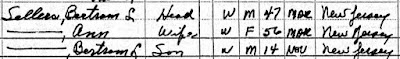 Sellers, Bertram L Head W M 47 MAR New Jersey
——, Ann Wife W F 56 MAR New Jersey
——, Bertram L Son W M 14 NOV New Jersey